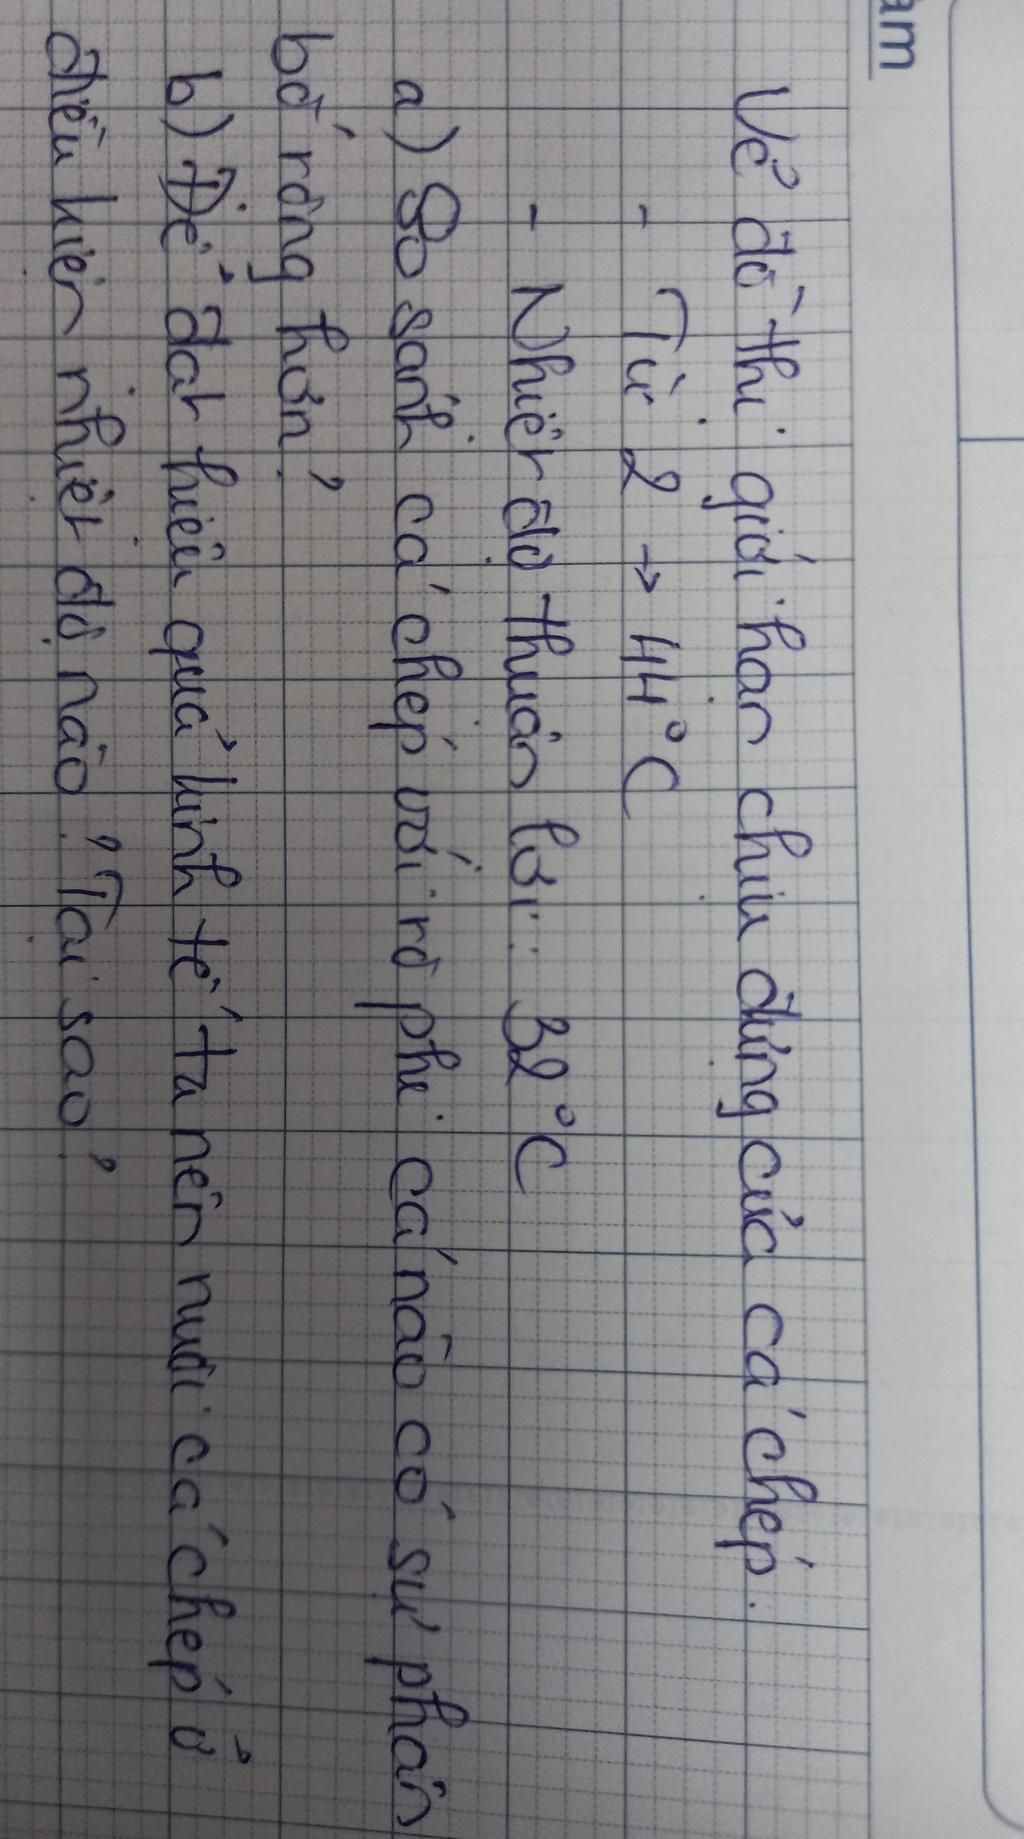 am
Vẽ đồ thị giới hạn chịu đựng của cá chép.
- Từ 2 → 44°C
- Nhiệt độ thuận lợi: 32°C
a) So sánh cá chép với rô phi cá nào có sự phân
bố rộng hơn?
b) Để đạt hiệu quả kinh tế ta nên nuôi cá chép ở
điều kiện nhiệt độ nào? Tại sao?